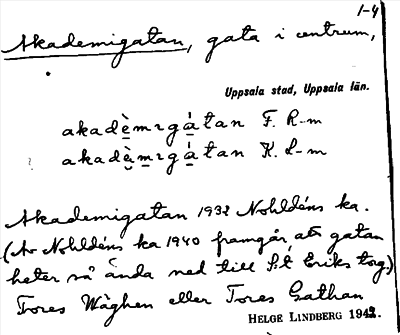 1-4
Akademigatan, gata i centrum,
Uppsala stad, Uppsala län.
akadè̱mıgá̱tan F. R-m
akadè̱m̱ıgá̱tan K. L-m
Akademigatan 1932 Nohldéns ka.
(Av Nohldéns ka 1940 framgår, att gatan
heter så ända ned till S:t Eriks torg.)
Tores Wäghen eller Tores Gathan
HELGE LINDBERG 1942.